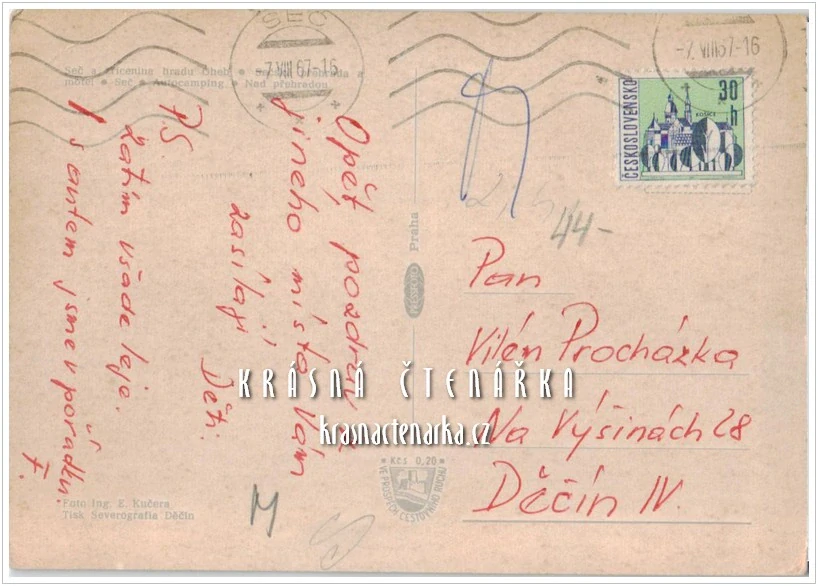 SEČ
-7.VIII67-16
-7.VIII67-16
Seč a zřícenina hradu Oheb • Sečská přehrada a
motel • Seč • Autocamping • Nad přehradou
30
h
ČESKOSLOVENSKO
KOŠICE
44-
Opět pozdrav z
jineho místa Vám
zasílají
Děti.
PS
Zatím všade leje.
I s autem jsme v pořádku.
F.
PRESSFOTO Praha
Pan
Vilém Procházka
Na Výšinách 28
Děčín IV.
KRÁSNÁ ČTENÁŘKA
krasnactenarka.cz
Kčs 0,20
VE PROSPĚCH CESTOVNÍHO RUCHU
Foto Ing. E. Kučera
Tisk Severografia Děčín
M